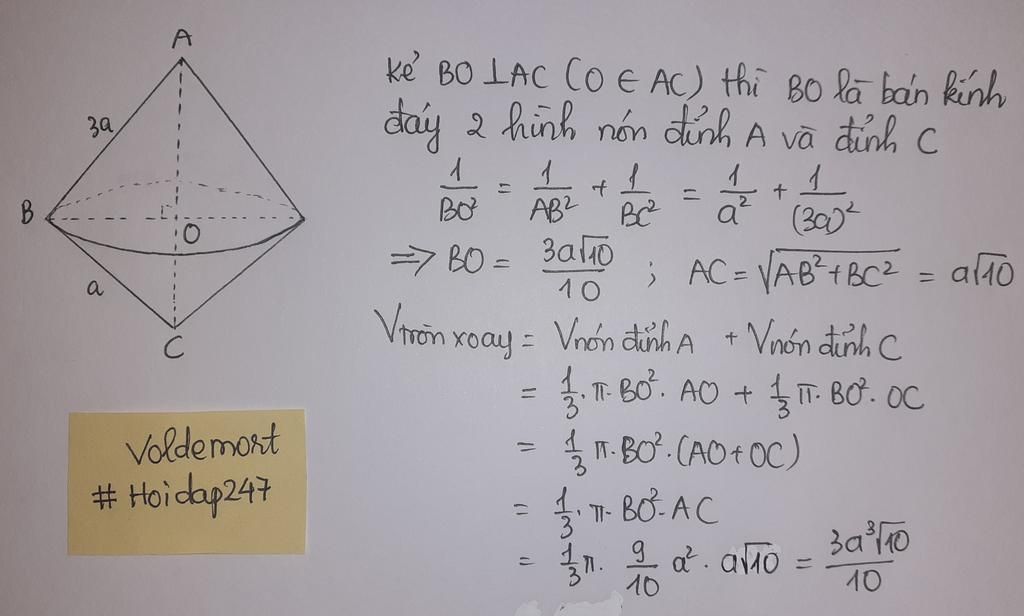 A
3a
B
O
a
C
Kẻ BO ⊥ AC (O ∈ AC) thì BO là bán kính
đáy 2 hình nón đỉnh A và đỉnh C
1/BO² = 1/AB² + 1/BC² = 1/a² + 1/(3a)²
=> BO = 3a√10/10 ; AC = √(AB²+BC²) = a√10
Vtròn xoay = Vnón đỉnh A + Vnón đỉnh C
= 1/3 . π. BO². AO + 1/3 π. BO². OC
= 1/3 π. BO². (AO + OC)
= 1/3 . π. BO². AC
= 1/3 π. 9/10 a² . a√10 = 3a³√10/10
Voldemort
# Hoidap247